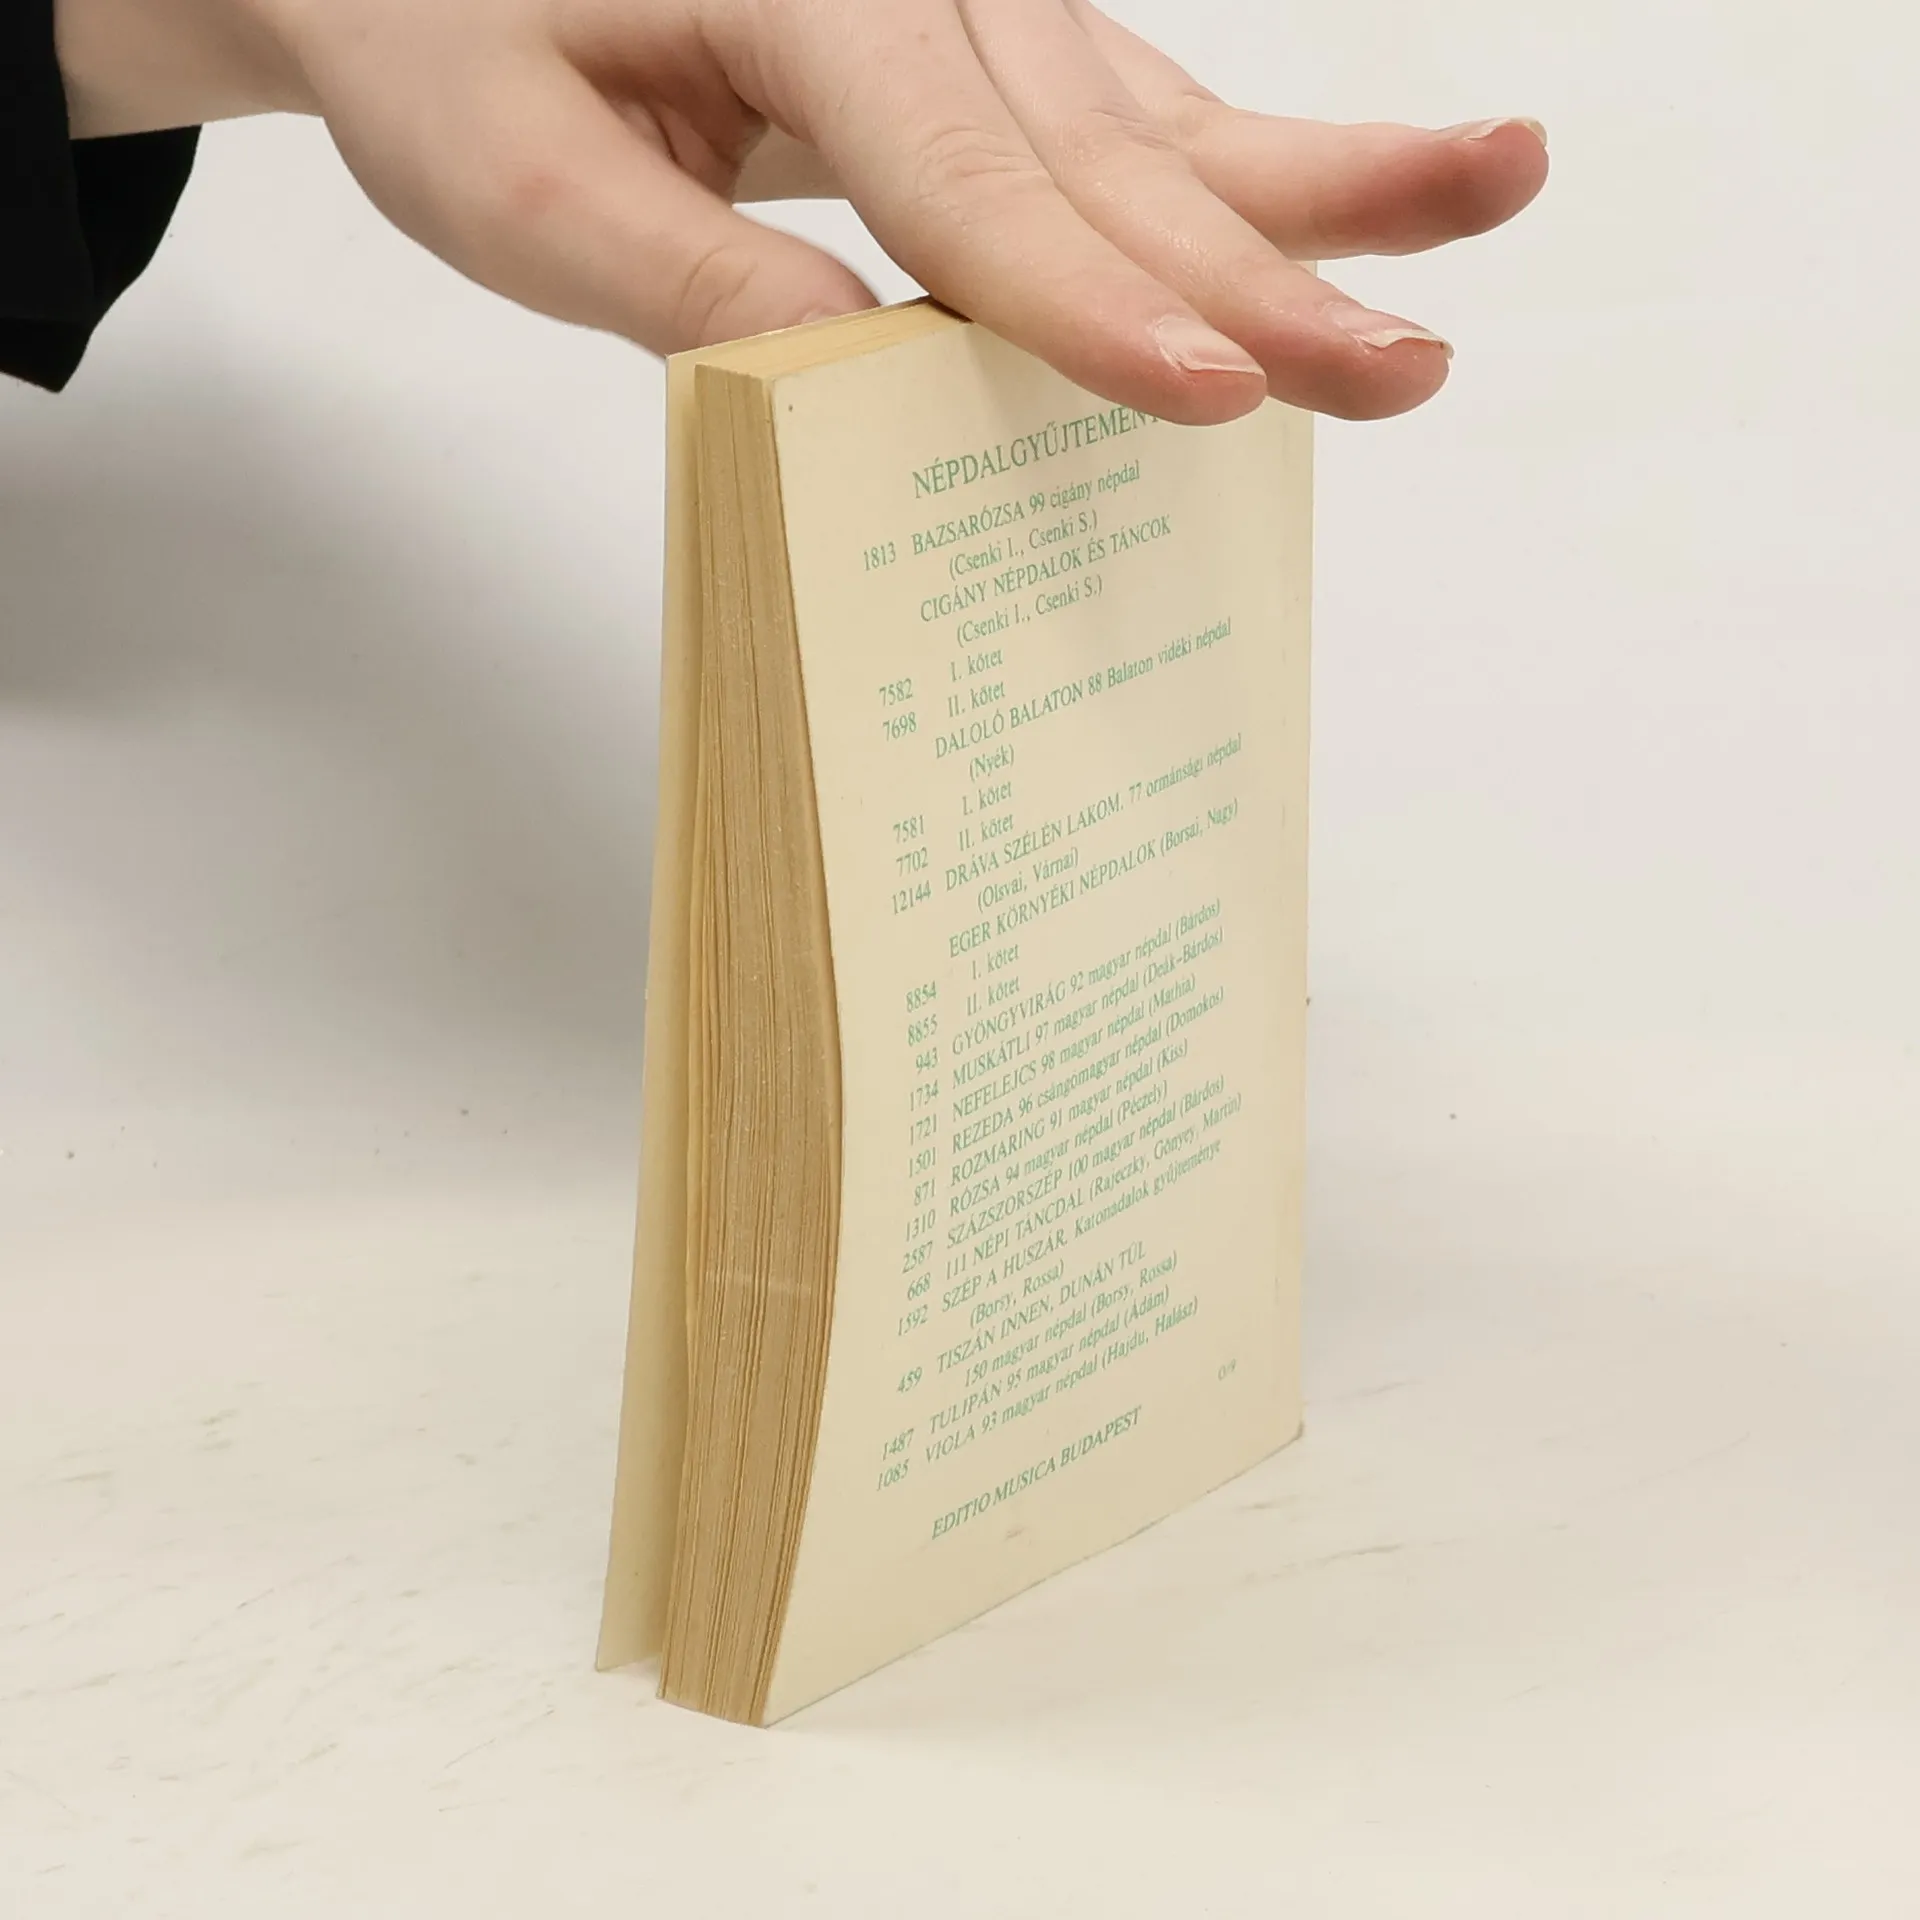 NÉPDALGYŰJTEMÉNY
1813 BAZSARÓZSA 99 cigány népdal
(Csenki I., Csenki S.)
CIGÁNY NÉPDALOK ÉS TÁNCOK
(Csenki I., Csenki S.)
7582 I. kötet
7698 II. kötet
DALOLÓ BALATON 88 Balaton vidéki népdal
(Nyék)
7581 I. kötet
7702 II. kötet
12144 DRÁVA SZÉLÉN LAKOM. 77 ormánsági népdal
(Olsvai, Várnai)
EGER KÖRNYÉKI NÉPDALOK (Borsai, Nagy)
8854 I. kötet
8855 II. kötet
943 GYÖNGYVIRÁG 92 magyar népdal (Bárdos)
1734 MUSKÁTLI 97 magyar népdal (Deák-Bárdos)
1721 NEFELEJCS 98 magyar népdal (Mathia)
1501 REZEDA 96 csángómagyar népdal (Domokos)
871 ROZMARING 91 magyar népdal (Kiss)
1310 RÓZSA 94 magyar népdal (Péczely)
2587 SZÁZSZORSZÉP 100 magyar népdal (Bárdos)
668 111 NÉPI TÁNCDAL (Rajeczky, Gönyey, Martin)
1592 SZÉP A HUSZÁR. Katonadalok gyűjteménye
(Borsy, Rossa)
459 TISZÁN INNEN, DUNÁN TÚL
150 magyar népdal (Borsy, Rossa)
1487 TULIPÁN 95 magyar népdal (Ádám)
1085 VIOLA 93 magyar népdal (Hajdu, Halász)
EDITIO MUSICA BUDAPEST